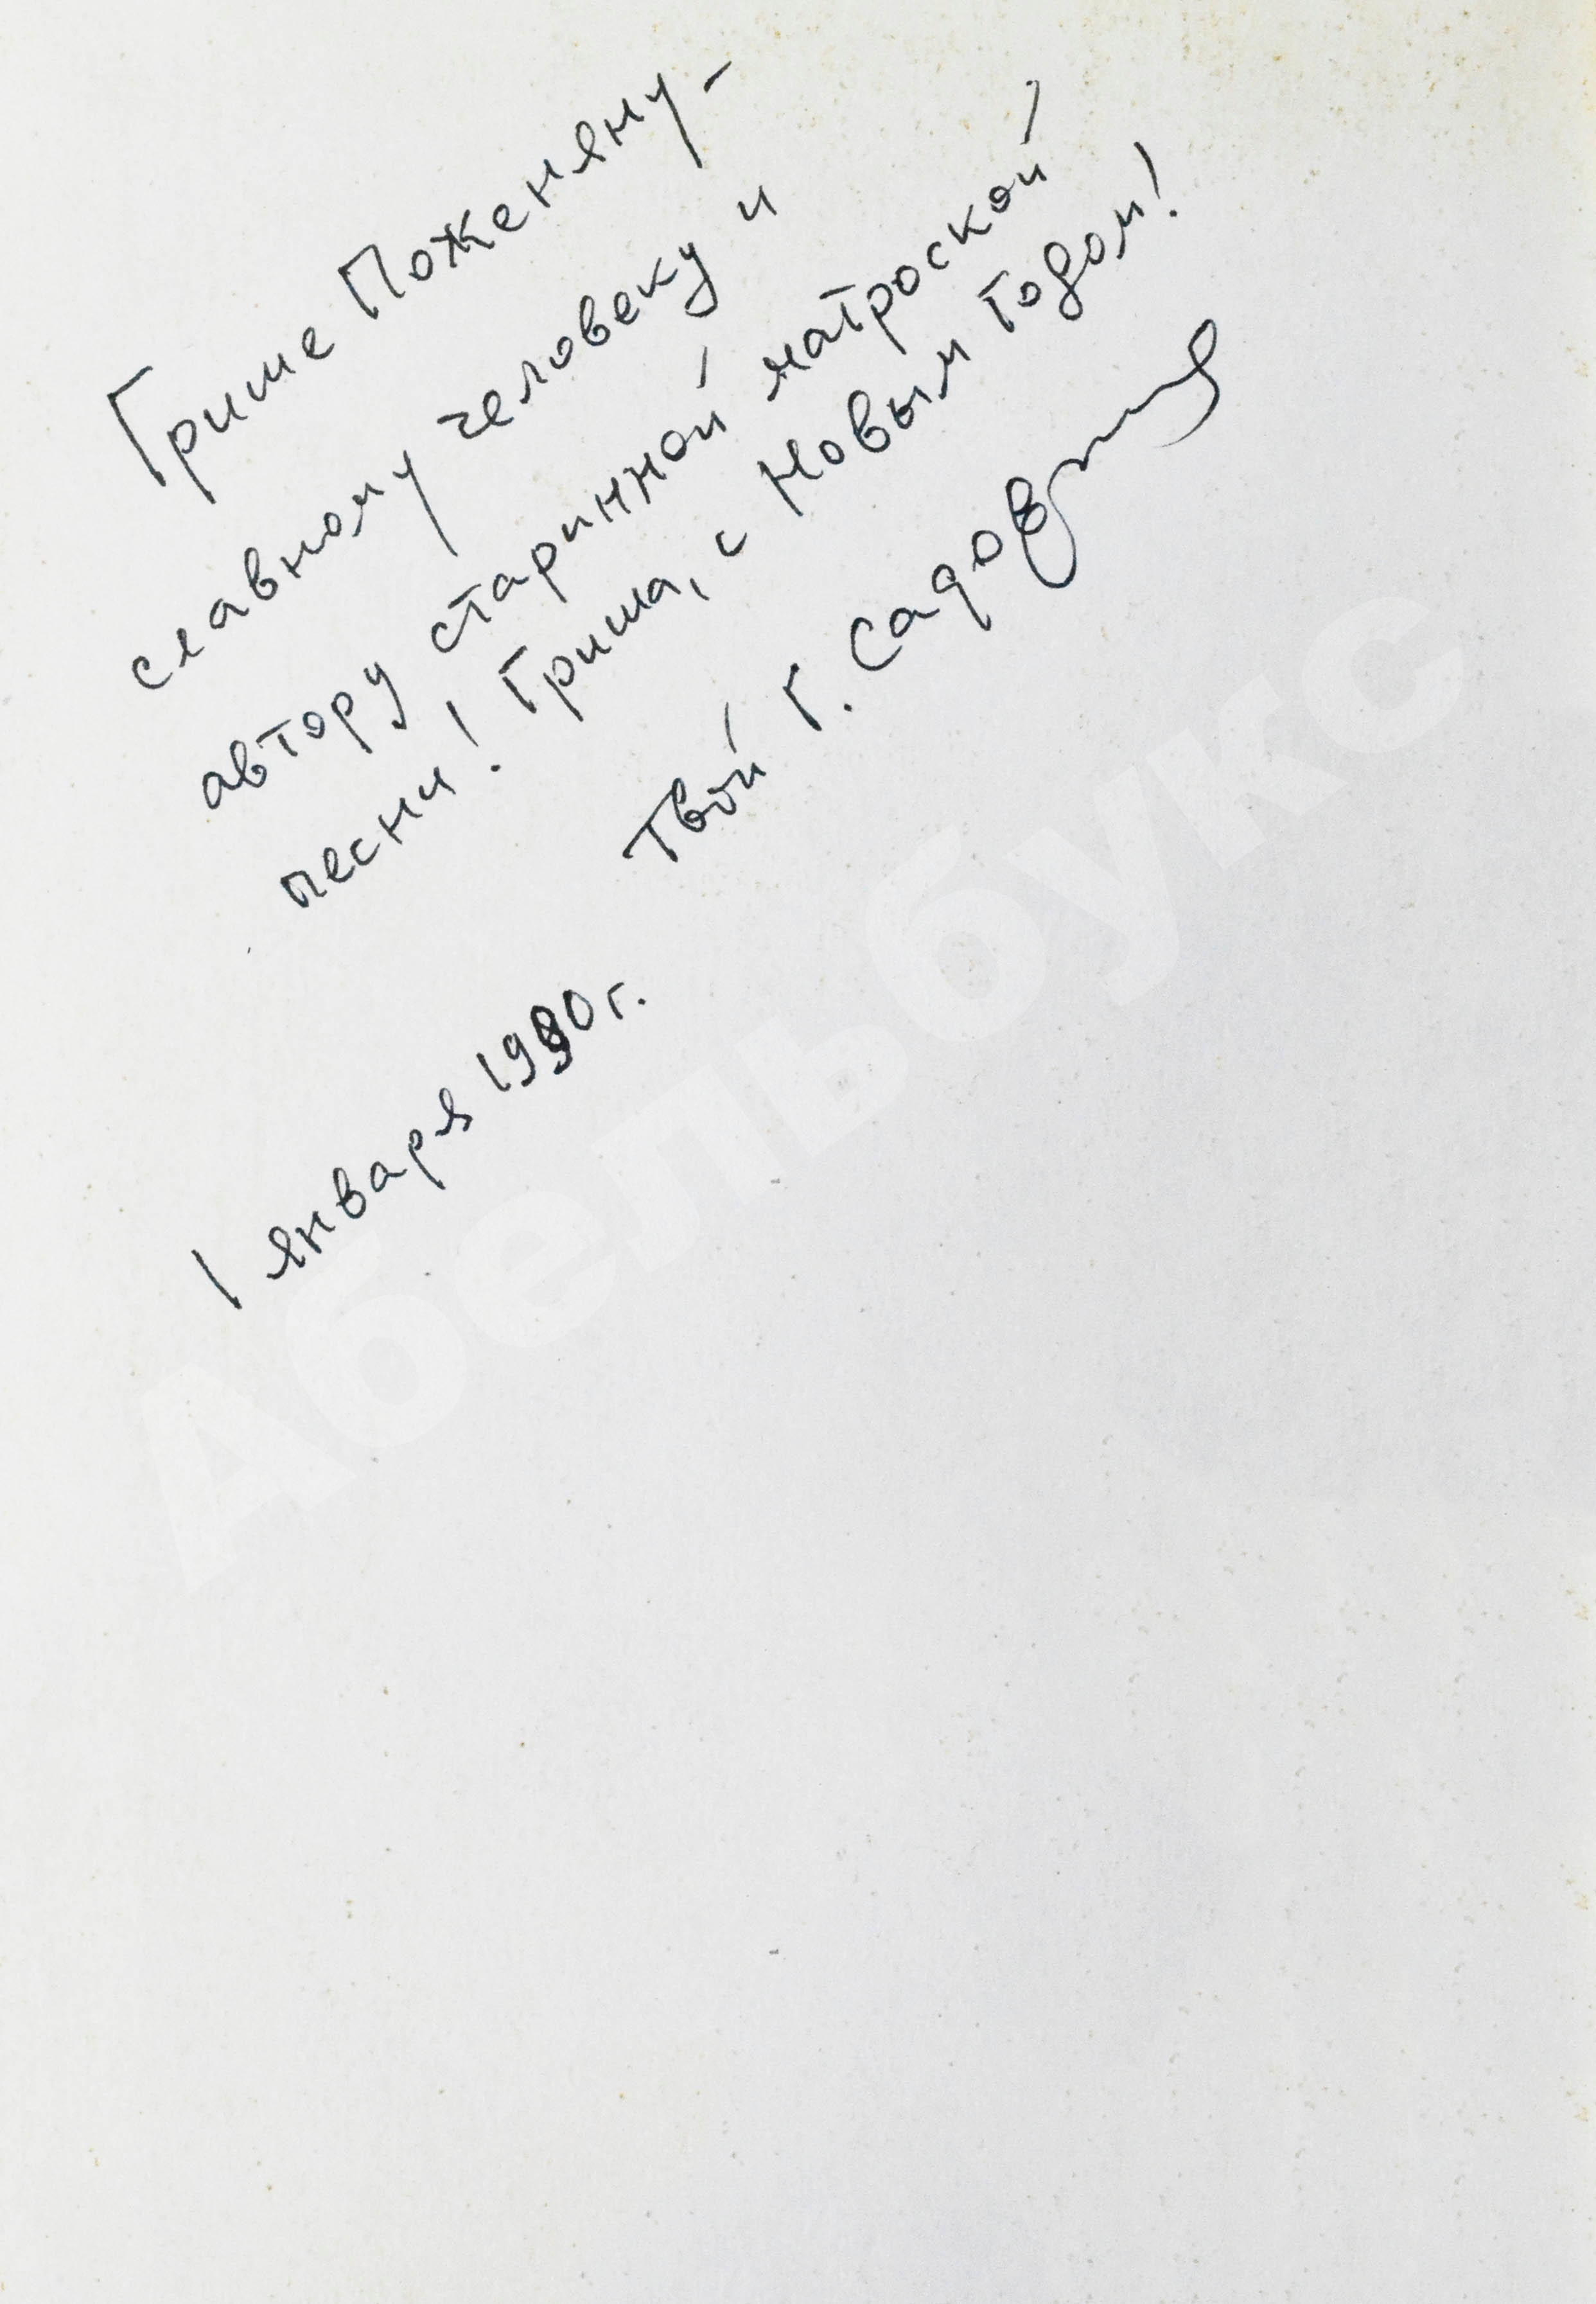 Грише Поженяну -
славному человеку и
автору старинной матроской
песни! Гриша, с Новым Годом!
Твой Г. Садовников
1 января 1990 г.
Абельбукс